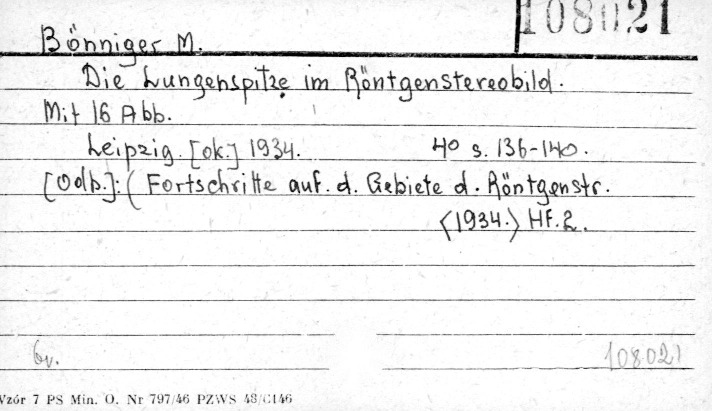 108021
Bönniger M.
Die Lungenspitze im Röntgenstereobild.
Mit 16 Abb.
Leipzig. [ok.] 1934. 4o s. 136-140.
[Odb.]: ( Fortschritte auf. d. Gebiete d. Röntgenstr.
<1934.> Hf. 2.
108021
Wzór 7 PS Min. O. Nr 797/46 PZWS 48/C146